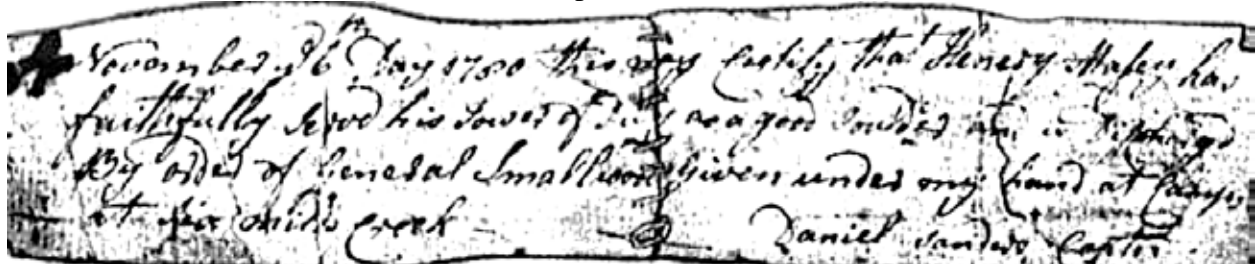 November ye 6th Day 1780 this may Certify that Henery Massey has
faithfully Servd his Tower of Duty as a good Soulder and is Discharged
By order of General Smallwood Given under my hand at Camp
at Six mile Creek Daniel Sanders Captn